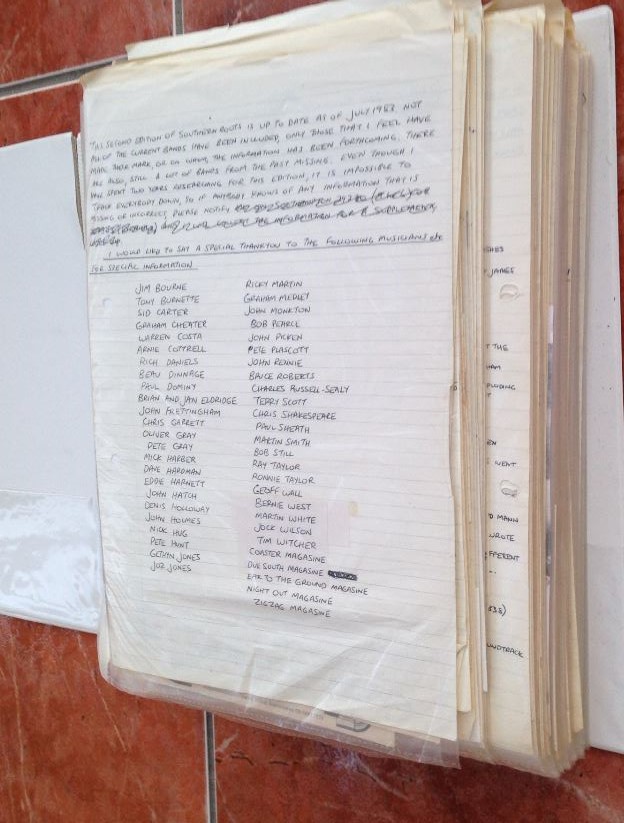 THIS SECOND EDITION OF SOUTHERN ROOTS IS UP TO DATE AS OF JULY 1983. NOT
ALL OF THE CURRENT BANDS HAVE BEEN INCLUDED, ONLY THOSE THAT I FEEL HAVE
MADE THEIR MARK, OR ON WHOM, THE INFORMATION HAS BEEN FORTHCOMING. THERE
ARE ALSO, STILL A LOT OF BANDS FROM THE PAST MISSING. EVEN THOUGH I
HAVE SPENT TWO YEARS RESEARCHING FOR THIS EDITION, IT IS IMPOSSIBLE TO
TRACK EVERYBODY DOWN, SO IF ANYBODY KNOWS OF ANY INFORMATION THAT IS
MISSING OR INCORRECT, PLEASE NOTIFY
I WOULD LIKE TO SAY A SPECIAL THANKYOU TO THE FOLLOWING MUSICIANS etc
FOR SPECIAL INFORMATION
JIM BOURNE
TONY BURNETTE
SID CARTER
GRAHAM CHEATER
WARREN COSTA
ARNIE COTTRELL
RICH DANIELS
BEAU DINNAGE
PAUL DOMINY
BRIAN AND JAN ELDRIDGE
JOHN FRETTINGHAM
CHRIS GARRETT
OLIVER GRAY
PETE GRAY
MICK HARBER
DAVE HARDMAN
EDDIE HARNETT
JOHN HATCH
DENIS HOLLOWAY
JOHN HOLMES
NICK HUG
PETE HUNT
GETHYN JONES
JOZ JONES
RICKY MARTIN
GRAHAM MEDLEY
JOHN MONKTON
BOB PEARCE
JOHN PICKEN
PETE PLASCOTT
JOHN RENNIE
BRYCE ROBERTS
CHARLES RUSSELL-SEALY
TERRY SCOTT
CHRIS SHAKESPEARE
PAUL SHEATH
MARTIN SMITH
BOB STILL
RAY TAYLOR
RONNIE TAYLOR
GEOFF WALL
BERNIE WEST
MARTIN WHITE
JOCK WILSON
TIM WITCHER
COASTER MAGASINE
DUE SOUTH MAGASINE
EAR TO THE GROUND MAGASINE
NIGHT OUT MAGASINE
ZIGZAG MAGASINE
JAMES
THE
WENT
D MANN
WROTE